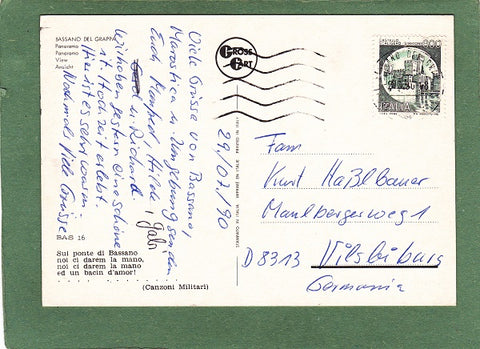 BASSANO DEL GRAPPA
Panorama
Panorama
View
Ansicht
Viele Grüsse von Bassano,
Marostica u. Umgebung senden
Euch Manfred, Hilde, Gabi
u. Richard.
Wir haben gestern eine schöne
Hochzeit erlebt.
Hier ist es sehr warm.
Nochmals viele Grüsse
29/07/90
BAS 16
Sul ponte di Bassano
noi ci darem la mano,
noi ci darem la mano
ed un bacin d'amor!
(Canzoni Militari)
GROSS
CART
ITALIA
Fam
Kurt Haßlbauer
Maulbergerweg 1
D 8313 Vilsbiburg
Germania